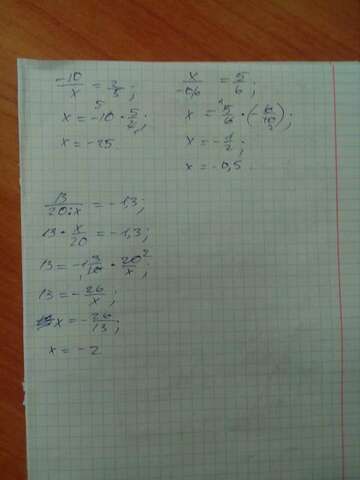 -10/x = 2/5;
x = -10 · 5/2;
x = -25
x/-0,6 = 5/6;
x = 5/6 · (-6/10);
x = -1/2;
x = -0,5.
13/20:x = -1,3;
13 · x/20 = -1,3;
13 = -1 3/10 · 20/x;
13 = -26/x;
x = -26/13;
x = -2